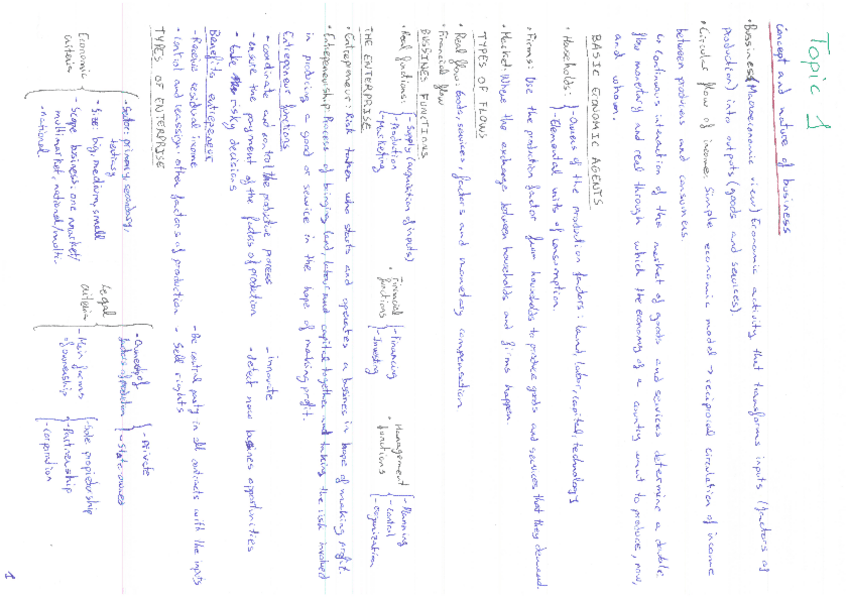 Topic 1
Concept and nature of business
• Business (Macroeconomic view) Economic activity that transforms inputs (factors of
production) into outputs (goods and services).
• Circular flow of income: Simple economic model → reciprocal circulation of income
between producers and consumers.
↳ continuous interaction of the market of goods and services determine a double
flow monetary and real through which the economy of a country want to produce, how,
and whom.
BASIC ECONOMIC AGENTS
• Households: - Owners of the production factors: land, labor, capital, technology
- Elemental units of consumption.
• Firms: Use the production factor from households to produce goods and services that they demand.
• Market: Where the exchange between households and firms happen.
TYPES OF FLOWS
• Real flow: Goods, services, factors and monetary compensation
• Financial flow
BUSSINES FUNCTIONS
• Real functions: - Supply (acquisition of inputs)
- Production
- Marketing
• Financial functions - Financing
- Investing
• Management functions - Planning
- Control
- Organization
THE ENTERPRISE
• Entrepreneur: Risk taker who starts and operates a business in hope of making profit.
• Entrepreneurship: Process of bringing land, labour and capital together and taking the risk involved
in producing a good or service in the hope of making profit.
Entrepreneur functions
- coordinate and control the productive process
- innovate
- ensure the payment of the factors of production
- detect new business opportunities
- take risky decisions
Benefits entrepreneur
- Receive residual income
- Be central party in all contracts with the inputs
- control and reassign other factors of production
- Sell rights
TYPES OF ENTERPRISE
Economic criteria
- Sector: primary, secondary, tertiary
- Size: big, medium, small
- Scope business: one market/
multimarket, national/multi-
national.
Legal criteria
- Ownership of factors of production
- Private
- State owned
- Main forms of ownership
- Sole propietorship
- Partnership
- Corporation
1